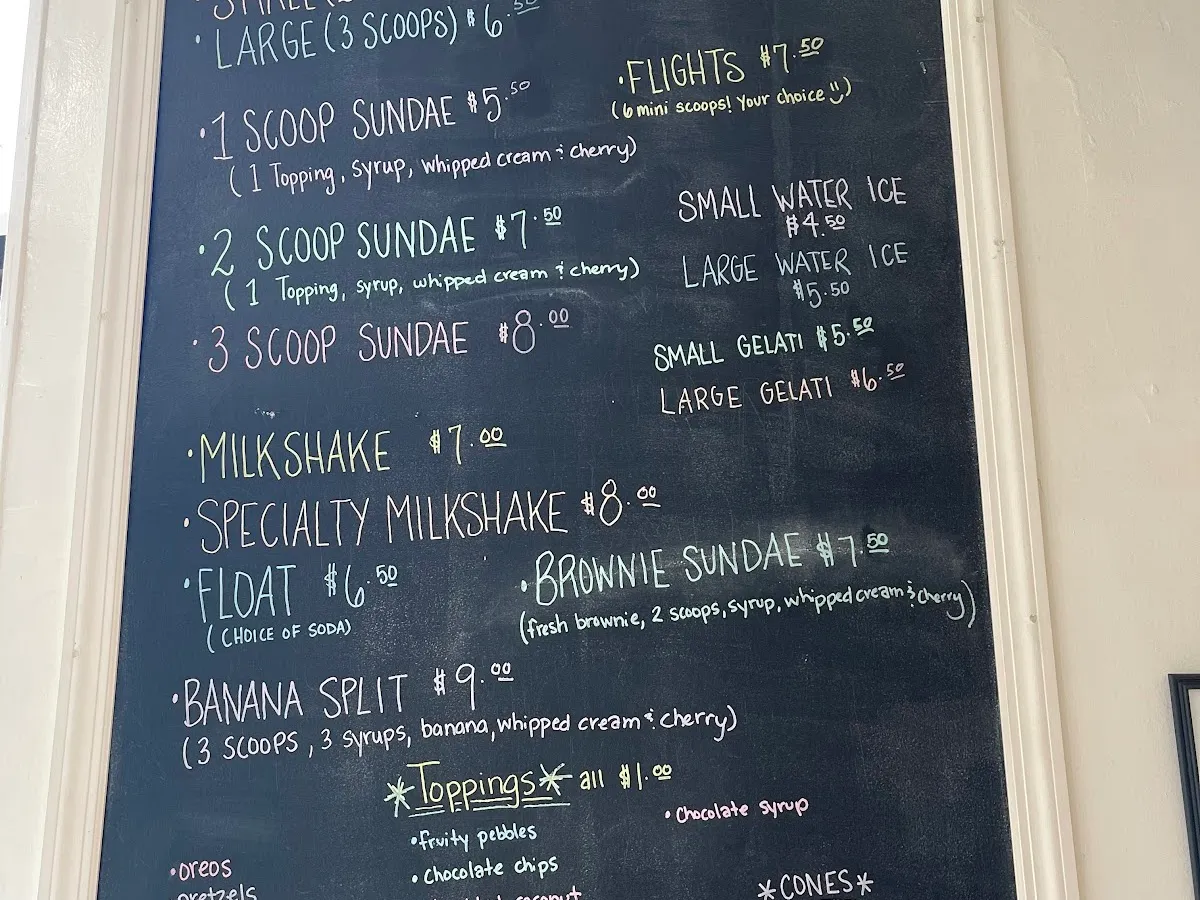 · LARGE (3 SCOOPS) $6.50
· 1 SCOOP SUNDAE $5.50
(1 Topping, syrup, whipped cream & cherry)
· 2 SCOOP SUNDAE $7.50
(1 Topping, syrup, whipped cream & cherry)
· 3 SCOOP SUNDAE $8.00
· FLIGHTS $7.50
(6 mini scoops! Your choice :))
SMALL WATER ICE
$4.50
LARGE WATER ICE
$5.50
SMALL GELATI $5.50
LARGE GELATI $6.50
· MILKSHAKE $7.00
· SPECIALTY MILKSHAKE $8.00
· FLOAT $6.50
(CHOICE OF SODA)
· BROWNIE SUNDAE $7.50
(fresh brownie, 2 scoops, syrup, whipped cream & cherry)
· BANANA SPLIT $9.00
(3 SCOOPS, 3 syrups, banana, whipped cream & cherry)
*Toppings* all $1.00
· oreos
pretzels
· fruity pebbles
· chocolate chips
coconut
· chocolate syrup
*CONES*